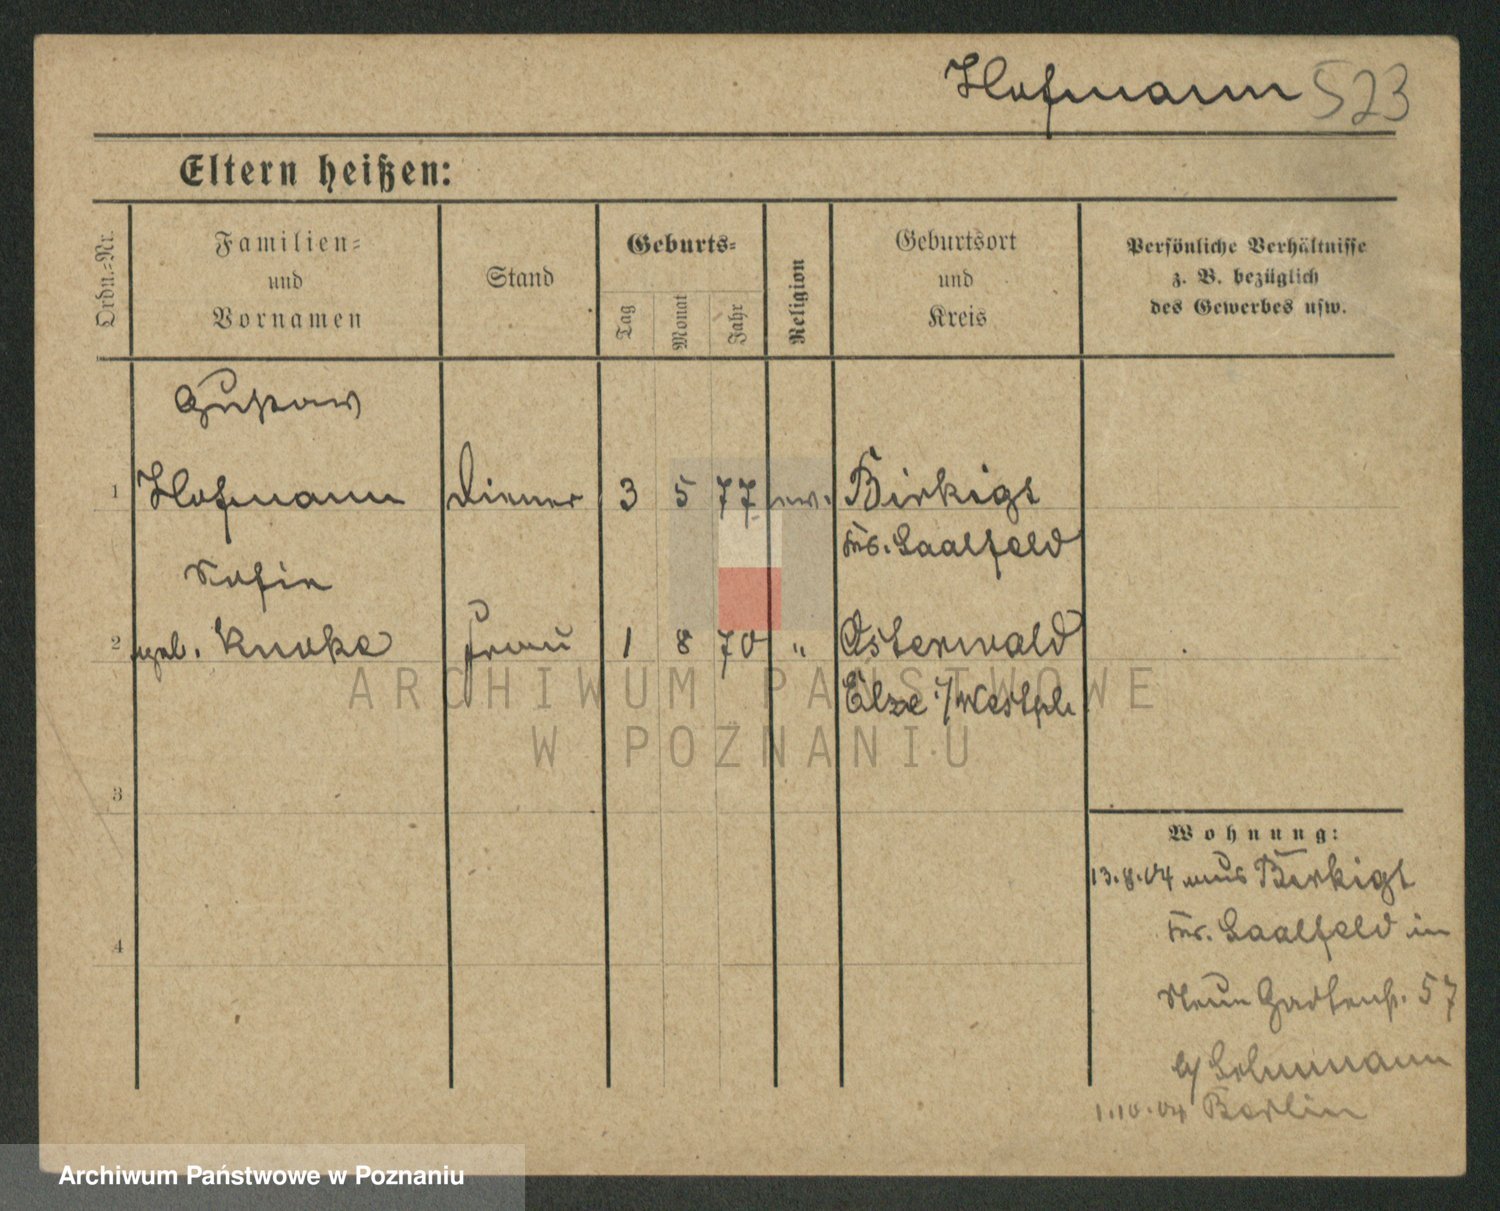 Hofmann 523
Eltern heißen:
Ordn.=Nr.
Familien=
und
Vornamen
Stand
Geburts=
Tag
Monat
Jahr
Religion
Geburtsort
und
Kreis
Persönliche Verhältnisse
z. B. bezüglich
des Gewerbes usw.
Gustav
1 Hofmann Diener 3 5 77 ev. Birkigt
Krs. Saalfeld
Sofie
2 geb. Knoke Frau 1 8 70 " Osterwald
Elze i/Westph.
3
4
Wohnung:
13.8.04 aus Birkigt
Krs. Saalfeld in
Neue Gartenstr. 57
b/ Schumann
1.10.04 Berlin
ARCHIWUM PAŃSTWOWE
W POZNANIU
Archiwum Państwowe w Poznaniu